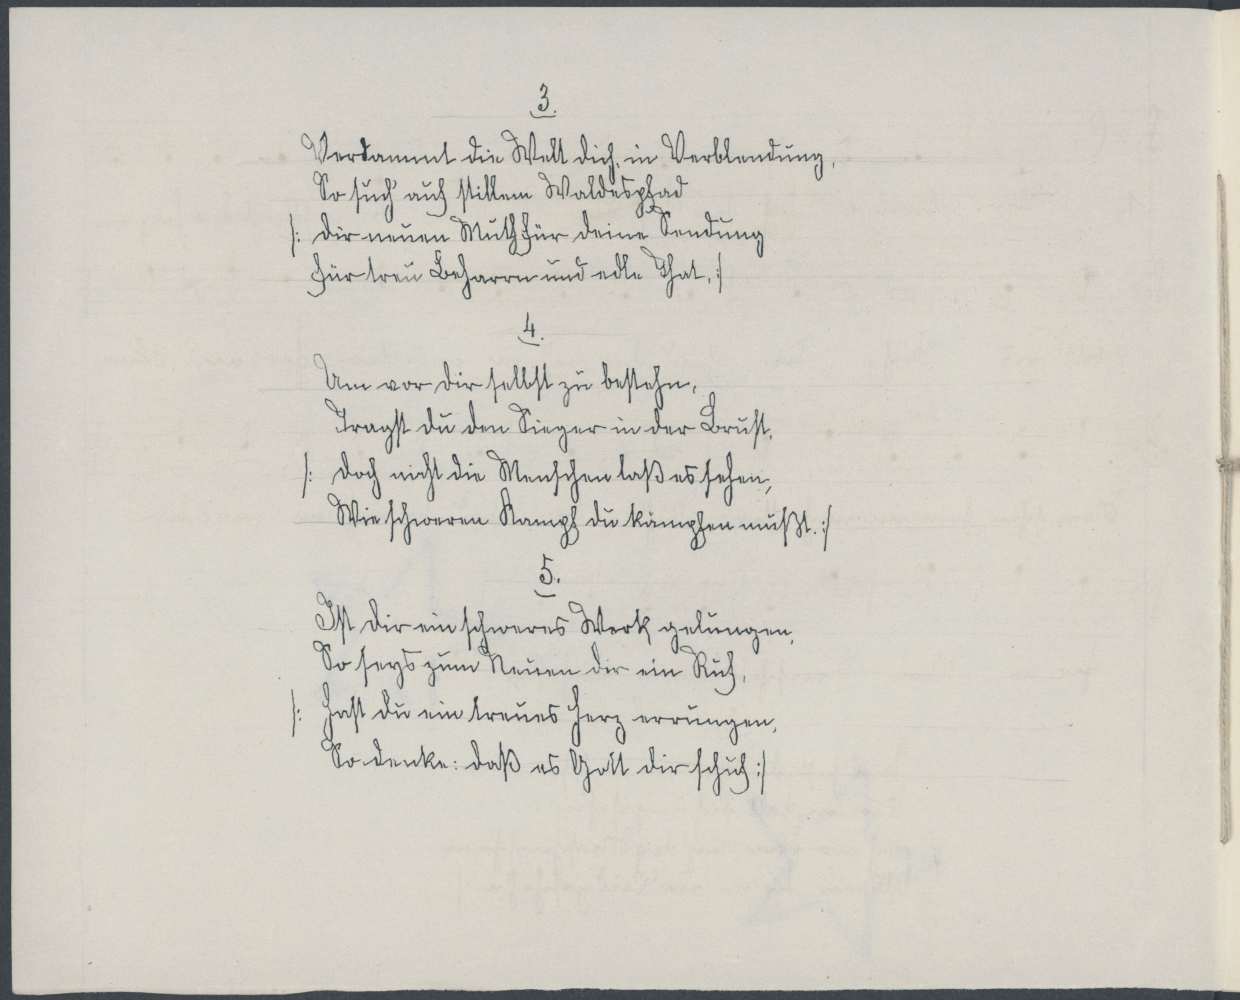 3.
Verdammt die Welt dich, in Verblendung,
So such' auf stillem Waldespfad
/: Dir neuen Muth für deine Sendung
Für treu Beharrn und edle That. :/
4.
Um vor dir selbst zu bestehn,
Tragst du den Sieger in der Brust,
/: Doch nicht die Menschen laß es sehen,
Wie schweren Kampf du kämpfen mußt. :/
5.
Ist dir ein schweres Werk gelungen,
So seys zum Neuen dir ein Ruf,
/: Hast du ein treues Herz errungen,
So denke: daß es Gott dir schuf :/